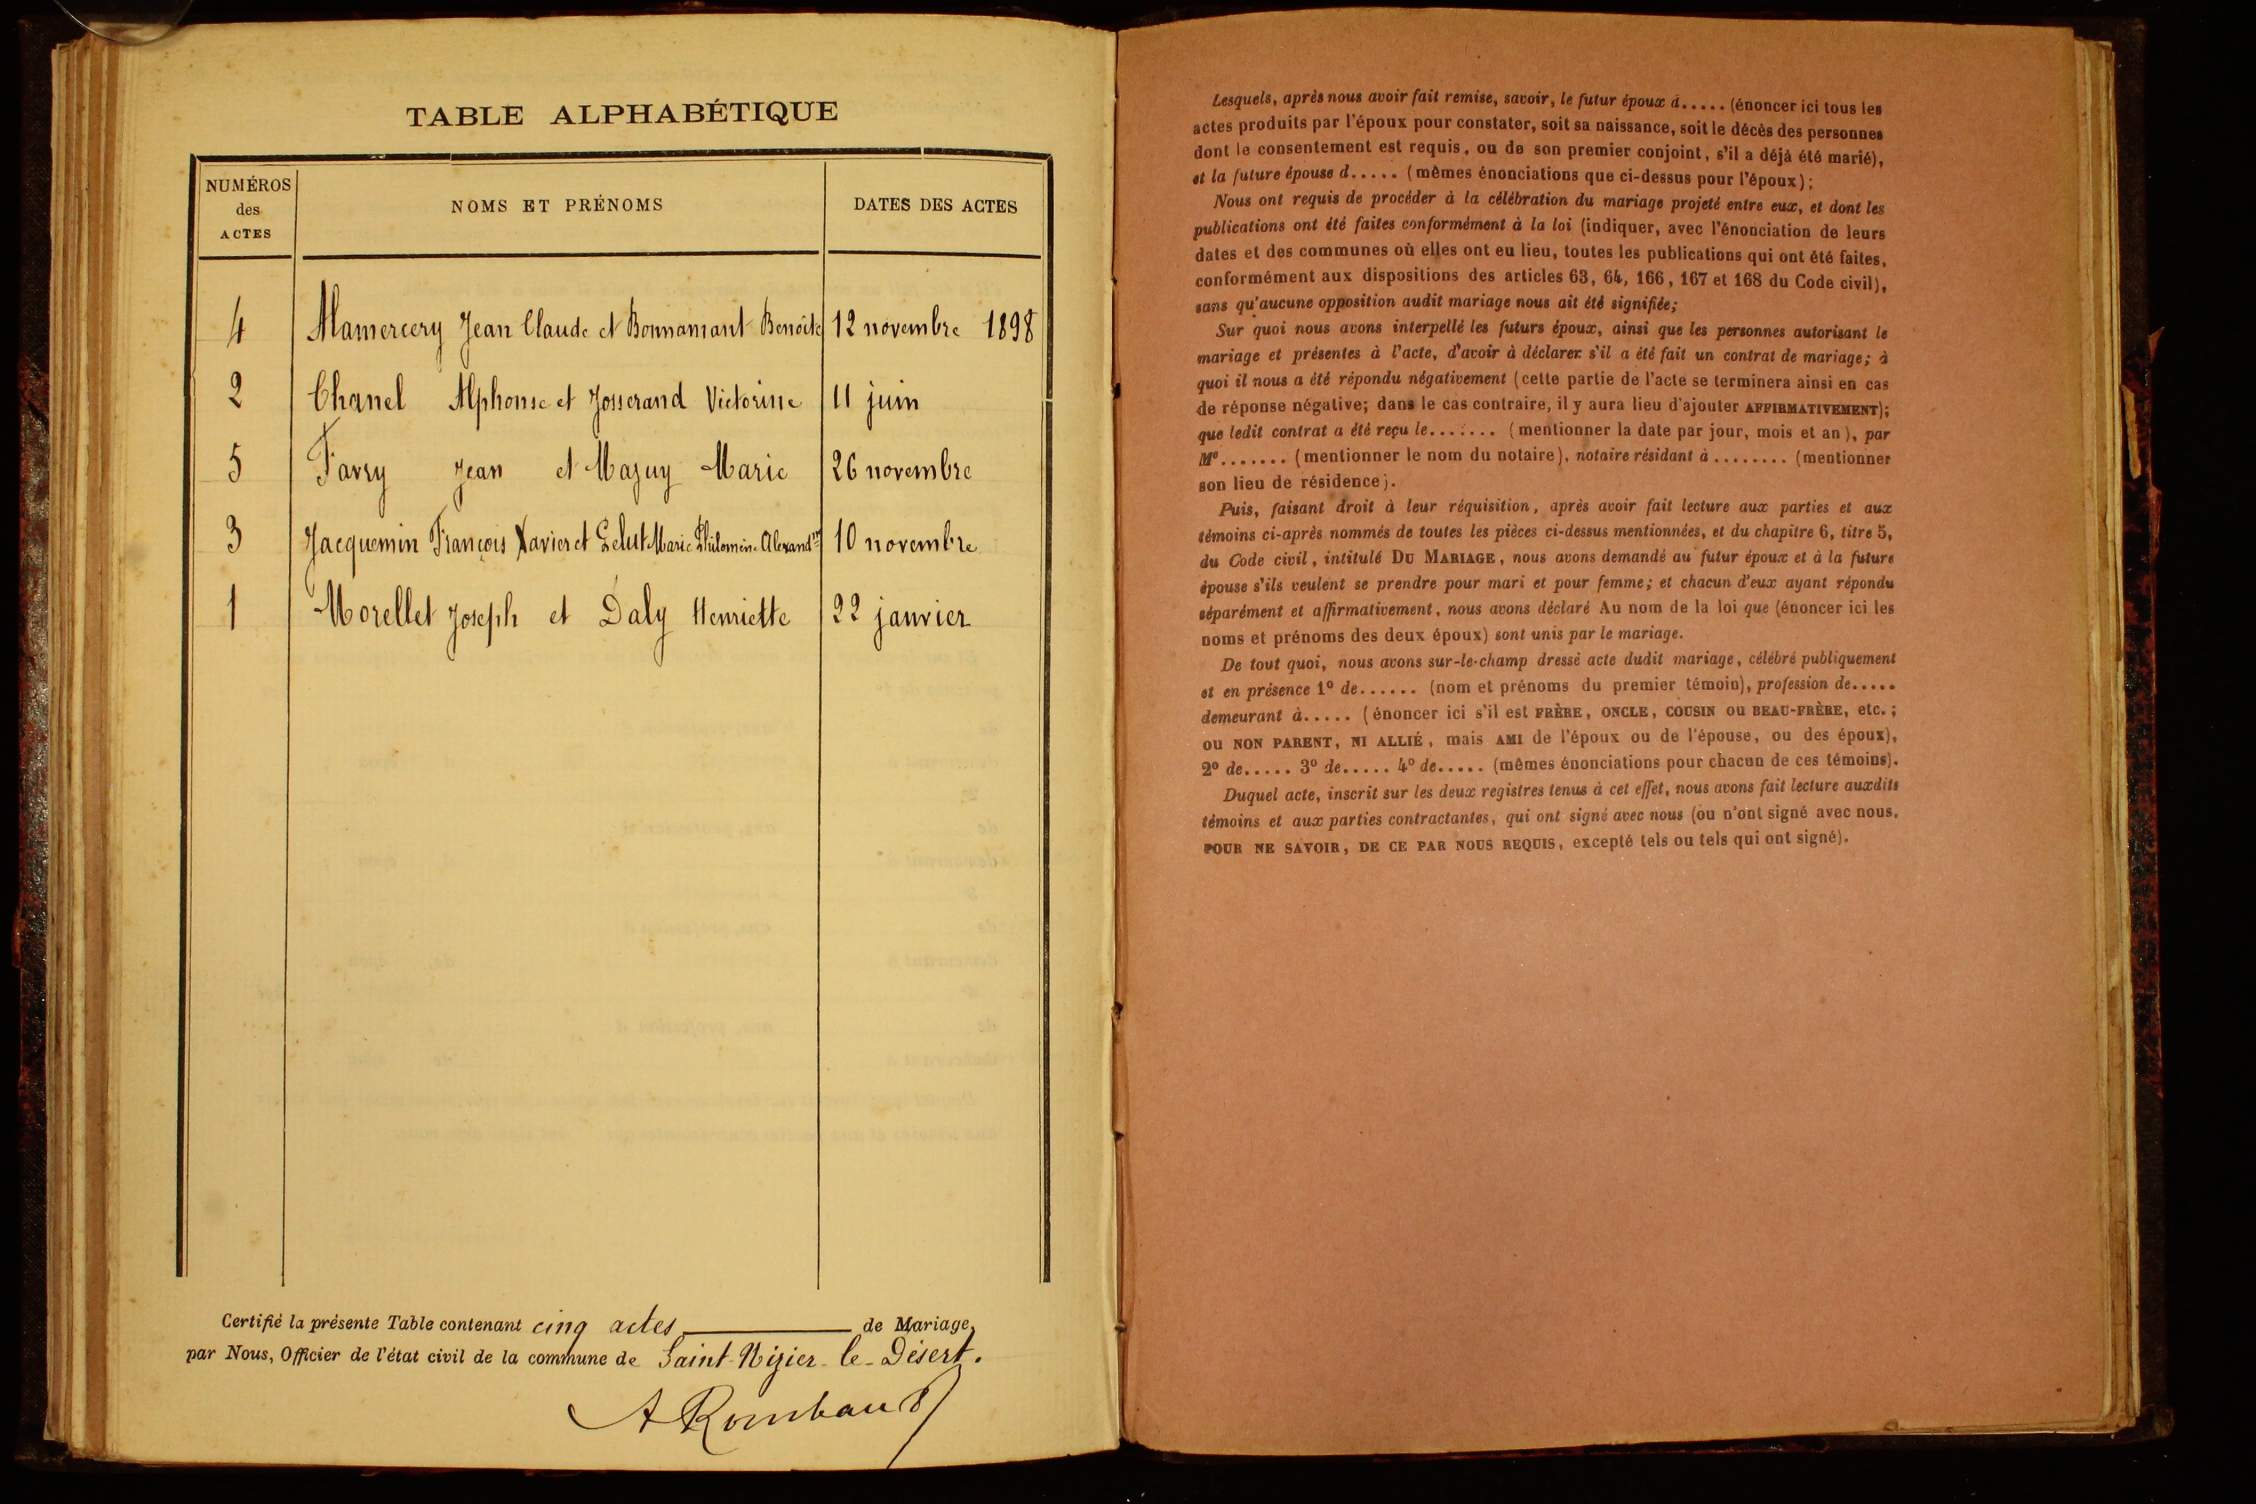 TABLE ALPHABÉTIQUE
NUMÉROS des ACTES
NOMS ET PRÉNOMS
DATES DES ACTES
4 Alamercery Jean Claude et Bonnamant Benoite 12 novembre 1898
2 Chanel Alphonse et Josserand Victorine 11 juin
5 Favry Jean et Mazuy Marie 26 novembre
3 Jacquemin François Xavier et Lelut Marie Philomène Alexand^ne 10 novembre
1 Morellet Joseph et Daly Henriette 22 janvier
Certifié la présente Table contenant cinq actes de Mariage,
par Nous, Officier de l'état civil de la commune de Saint-Nizier-le-Désert.
A Rombaud
Lesquels, après nous avoir fait remise, savoir, le futur époux d..... (énoncer ici tous les
actes produits par l'époux pour constater, soit sa naissance, soit le décès des personnes
dont le consentement est requis, ou de son premier conjoint, s'il a déjà été marié),
et la future épouse d..... (mêmes énonciations que ci-dessus pour l'époux);
Nous ont requis de procéder à la célébration du mariage projeté entre eux, et dont les
publications ont été faites conformément à la loi (indiquer, avec l'énonciation de leurs
dates et des communes où elles ont eu lieu, toutes les publications qui ont été faites,
conformément aux dispositions des articles 63, 64, 166, 167 et 168 du Code civil),
sans qu'aucune opposition audit mariage nous ait été signifiée;
Sur quoi nous avons interpellé les futurs époux, ainsi que les personnes autorisant le
mariage et présentes à l'acte, d'avoir à déclarer s'il a été fait un contrat de mariage; à
quoi il nous a été répondu négativement (cette partie de l'acte se terminera ainsi en cas
de réponse négative; dans le cas contraire, il y aura lieu d'ajouter AFFIRMATIVEMENT);
que ledit contrat a été reçu le....... (mentionner la date par jour, mois et an), par
Me....... (mentionner le nom du notaire), notaire résidant à ........ (mentionner
son lieu de résidence).
Puis, faisant droit à leur réquisition, après avoir fait lecture aux parties et aux
témoins ci-après nommés de toutes les pièces ci-dessus mentionnées, et du chapitre 6, titre 5,
du Code civil, intitulé DU MARIAGE, nous avons demandé au futur époux et à la future
épouse s'ils veulent se prendre pour mari et pour femme; et chacun d'eux ayant répondu
séparément et affirmativement, nous avons déclaré Au nom de la loi que (énoncer ici les
noms et prénoms des deux époux) sont unis par le mariage.
De tout quoi, nous avons sur-le-champ dressé acte dudit mariage, célébré publiquement
et en présence 1º de...... (nom et prénoms du premier témoin), profession de.....
demeurant à..... (énoncer ici s'il est FRÈRE, ONCLE, COUSIN ou BEAU-FRÈRE, etc.;
ou NON PARENT, NI ALLIÉ, mais AMI de l'époux ou de l'épouse, ou des époux),
2º de..... 3º de..... 4º de..... (mêmes énonciations pour chacun de ces témoins).
Duquel acte, inscrit sur les deux registres tenus à cet effet, nous avons fait lecture auxdits
témoins et aux parties contractantes, qui ont signé avec nous (ou n'ont signé avec nous,
POUR NE SAVOIR, DE CE PAR NOUS REQUIS, excepté tels ou tels qui ont signé).